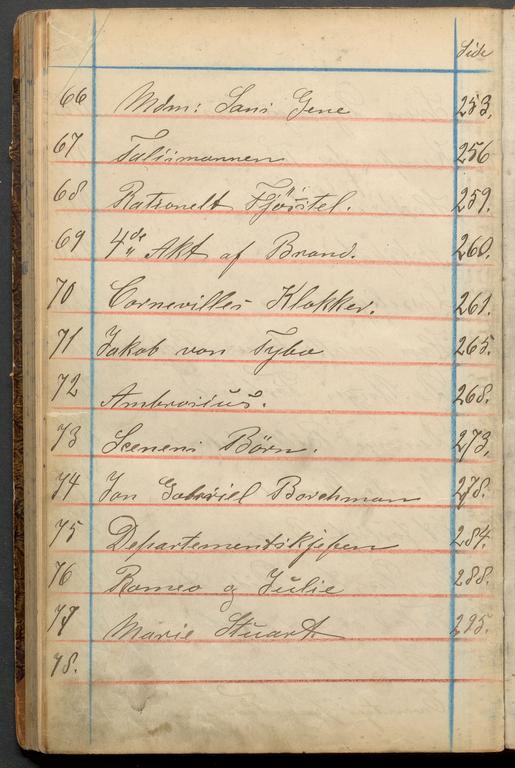 Side
66 Mdm: Sans Gene 253.
67 Talismannen 256
68 Rationelt Fjösstel. 259.
69 4de Akt af Brand. 260.
70 Cornevilles Klokker. 261.
71 Jakob von Tybo 265.
72 Ambrosius. 268.
73 Scenens Börn. 273.
74 Jon Gabriel Borchman 278.
75 Departementskjefen 284.
76 Romeo og Julie 288.
77 Marie Stuart 295.
78.